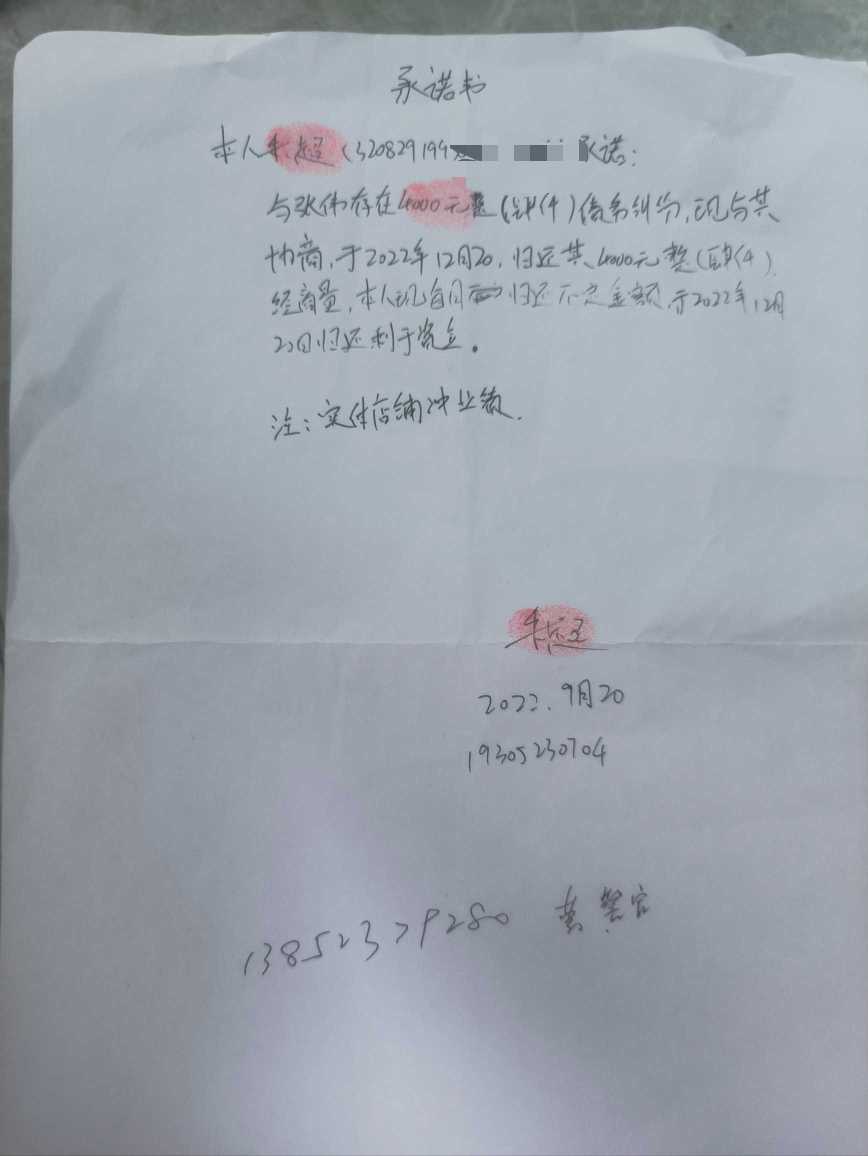 承诺书
本人朱超(320829199 承诺:
与张伟存在4000元整(肆仟)债务纠纷,现与其
协商,于2022年12月20,归还其4000元整(肆仟)
经商量,本人现每月 归还不定金额,于2022年12月
20日归还剩于资金。
注:实体店铺冲业绩.
朱超
2022.9月20
19305230704
13852379280 黄警官